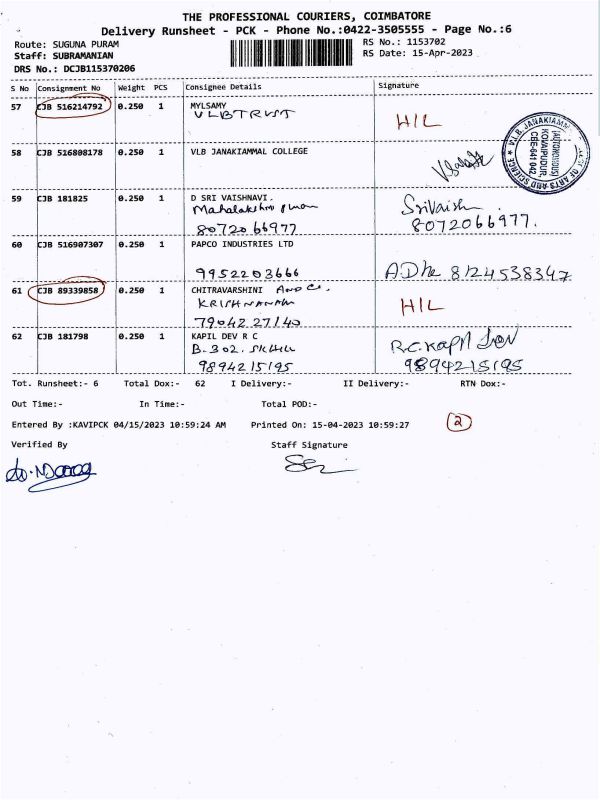 THE PROFESSIONAL COURIERS, COIMBATORE
Delivery Runsheet - PCK - Phone No.:0422-3505555 - Page No.:6
Route: SUGUNA PURAM RS No.: 1153702
Staff: SUBRAMANIAN RS Date: 15-Apr-2023
DRS No.: DCJB115370206
S No Consignment No Weight PCS Consignee Details Signature
57 CJB 516214792 0.250 1 MYLSAMY
VLB TRUST HIL
58 CJB 516808178 0.250 1 VLB JANAKIAMMAL COLLEGE
V.L.B. JANAKIAMMAL COLLEGE OF ARTS AND SCIENCE
(AUTONOMOUS)
KOVAIPUDUR
CBE-641 042
59 CJB 181825 0.250 1 D SRI VAISHNAVI.
Mahalakshmi Srivaish
8072066977 8072066977.
60 CJB 516907307 0.250 1 PAPCO INDUSTRIES LTD
9952203666 8124538347
61 CJB 89339858 0.250 1 CHITRAVARSHINI AND CO.
HIL
7904227140
62 CJB 181798 0.250 1 KAPIL DEV R C
B-302. R.C. Kapil Dev
9894215195 9894215195
Tot. Runsheet:- 6 Total Dox:- 62 I Delivery:- II Delivery:- RTN Dox:-
Out Time:- In Time:- Total POD:-
Entered By :KAVIPCK 04/15/2023 10:59:24 AM Printed On: 15-04-2023 10:59:27 2
Verified By Staff Signature